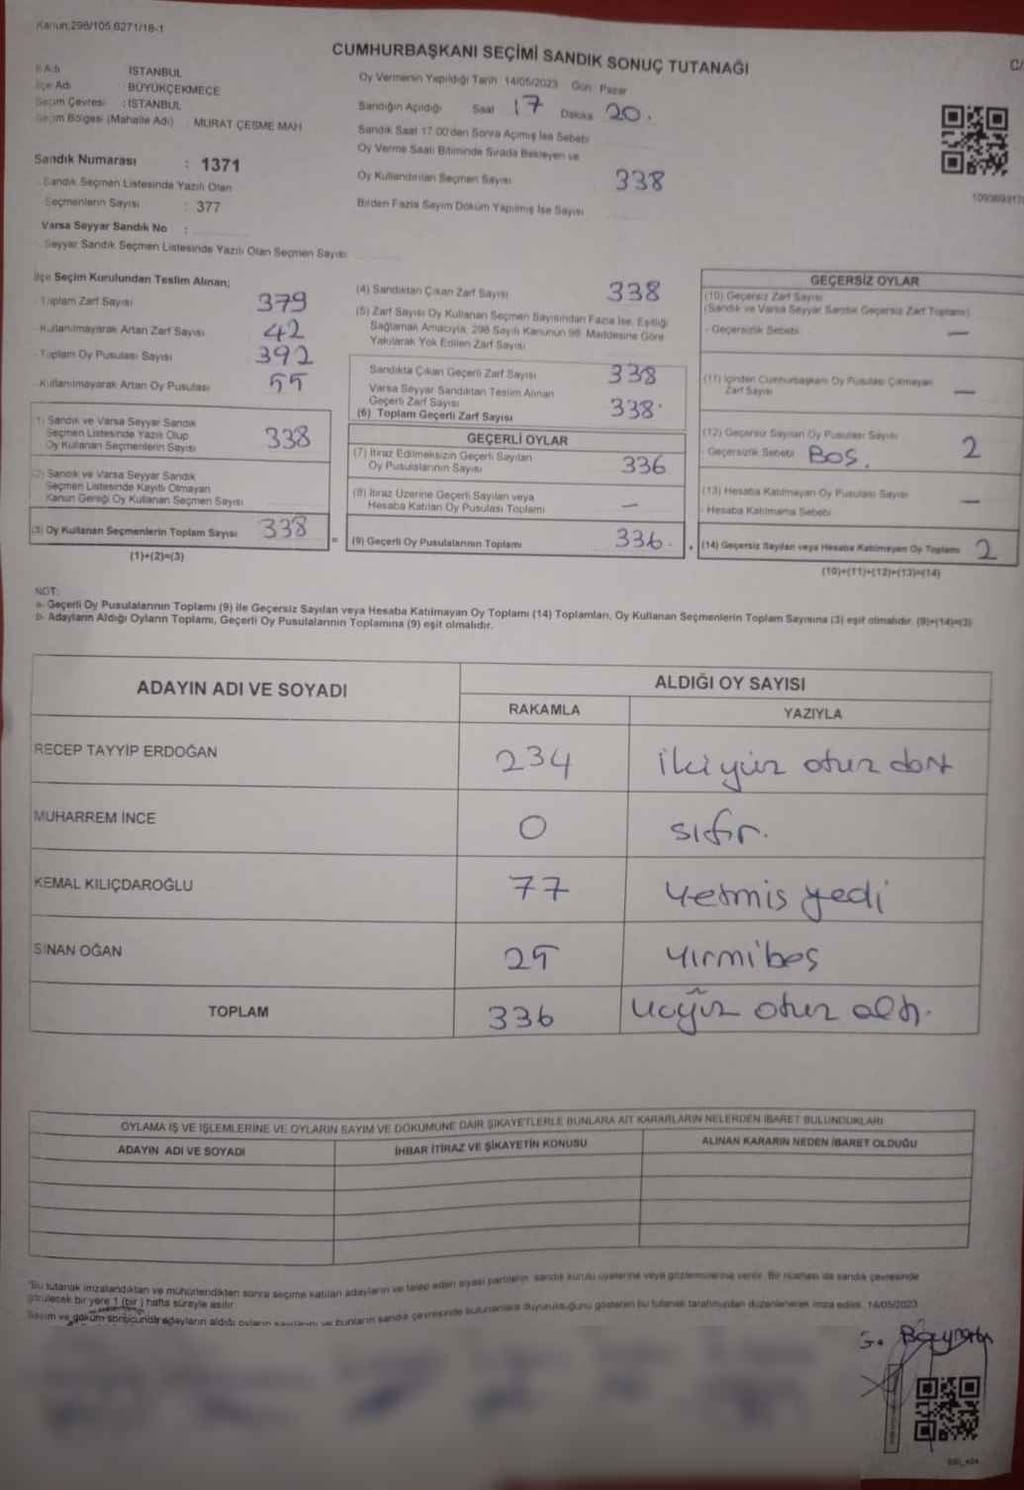 Kanun:298/105,6271/18-1
CUMHURBAŞKANI SEÇİMİ SANDIK SONUÇ TUTANAĞI
C/
İl Adı : İSTANBUL
İlçe Adı : BÜYÜKÇEKMECE
Seçim Çevresi : İSTANBUL
Seçim Bölgesi (Mahalle Adı) : MURAT ÇESME MAH
Sandık Numarası : 1371
Sandık Seçmen Listesinde Yazılı Olan
Seçmenlerin Sayısı : 377
Varsa Seyyar Sandık No :
Seyyar Sandık Seçmen Listesinde Yazılı Olan Seçmen Sayısı
Oy Vermenin Yapıldığı Tarih : 14/05/2023 Gün : Pazar
Sandığın Açıldığı Saat 17 Dakika 20.
Sandık Saat 17.00'den Sonra Açılmış İse Sebebi
Oy Verme Saati Bitiminde Sırada Bekleyen ve
Oy Kullandırılan Seçmen Sayısı 338
Birden Fazla Sayım Döküm Yapılmış İse Sayısı
İlçe Seçim Kurulundan Teslim Alınan;
Toplam Zarf Sayısı 379
- Kullanılmayarak Artan Zarf Sayısı 42
- Toplam Oy Pusulası Sayısı 392
- Kullanılmayarak Artan Oy Pusulası 55
(1) Sandık ve Varsa Seyyar Sandık
Seçmen Listesinde Yazılı Olup
Oy Kullanan Seçmenlerin Sayısı 338
(2) Sandık ve Varsa Seyyar Sandık
Seçmen Listesinde Kayıtlı Olmayan
Kanun Gereği Oy Kullanan Seçmen Sayısı
(3) Oy Kullanan Seçmenlerin Toplam Sayısı 338
(1)+(2)=(3)
(4) Sandıktan Çıkan Zarf Sayısı 338
(5) Zarf Sayısı Oy Kullanan Seçmen Sayısından Fazla İse, Eşitliği
Sağlamak Amacıyla, 298 Sayılı Kanunun 98. Maddesine Göre
Yakılarak Yok Edilen Zarf Sayısı
Sandıkta Çıkan Geçerli Zarf Sayısı 338
Varsa Seyyar Sandıktan Teslim Alınan
Geçerli Zarf Sayısı
(6) Toplam Geçerli Zarf Sayısı 338
GEÇERLİ OYLAR
(7) İtiraz Edilmeksizin Geçerli Sayılan
Oy Pusulalarının Sayısı 336
(8) İtiraz Üzerine Geçerli Sayılan veya
Hesaba Katılan Oy Pusulası Toplamı —
(9) Geçerli Oy Pusulalarının Toplamı 336
GEÇERSİZ OYLAR
(10) Geçersiz Zarf Sayısı
(Sandık ve Varsa Seyyar Sandık Geçersiz Zarf Toplamı)
- Geçersizlik Sebebi —
(11) İçinden Cumhurbaşkanı Oy Pusulası Çıkmayan
Zarf Sayısı —
(12) Geçersiz Sayılan Oy Pusulası Sayısı 2
- Geçersizlik Sebebi BOS.
(13) Hesaba Katılmayan Oy Pusulası Sayısı —
- Hesaba Katılmama Sebebi
(14) Geçersiz Sayılan veya Hesaba Katılmayan Oy Toplamı 2
(10)+(11)+(12)+(13)=(14)
NOT:
a- Geçerli Oy Pusulalarının Toplamı (9) ile Geçersiz Sayılan veya Hesaba Katılmayan Oy Toplamı (14) Toplamları, Oy Kullanan Seçmenlerin Toplam Sayısına (3) eşit olmalıdır. (9)+(14)=(3)
b- Adayların Aldığı Oyların Toplamı, Geçerli Oy Pusulalarının Toplamına (9) eşit olmalıdır.
ADAYIN ADI VE SOYADI
ALDIĞI OY SAYISI
RAKAMLA YAZIYLA
RECEP TAYYİP ERDOĞAN 234 ikiyüz otuz dört
MUHARREM İNCE 0 sıfır.
KEMAL KILIÇDAROĞLU 77 yetmis yedi
SİNAN OĞAN 25 yirmibeş
TOPLAM 336 Üçyüz otuz altı.
OYLAMA İŞ VE İŞLEMLERİNE VE OYLARIN SAYIM VE DÖKÜMÜNE DAİR ŞİKAYETLERLE BUNLARA AİT KARARLARIN NELERDEN İBARET BULUNDUKLARI
ADAYIN ADI VE SOYADI İHBAR İTİRAZ VE ŞİKAYETİN KONUSU ALINAN KARARIN NEDEN İBARET OLDUĞU
"Bu tutanak imzalandıktan ve mühürlendikten sonra seçime katılan adayların ve talep eden siyasi partilerin sandık kurulu üyelerine veya gözlemcilerine verilir. Bir nüshası da sandık çevresinde
görülecek bir yere 1 (bir) hafta süreyle asılır.